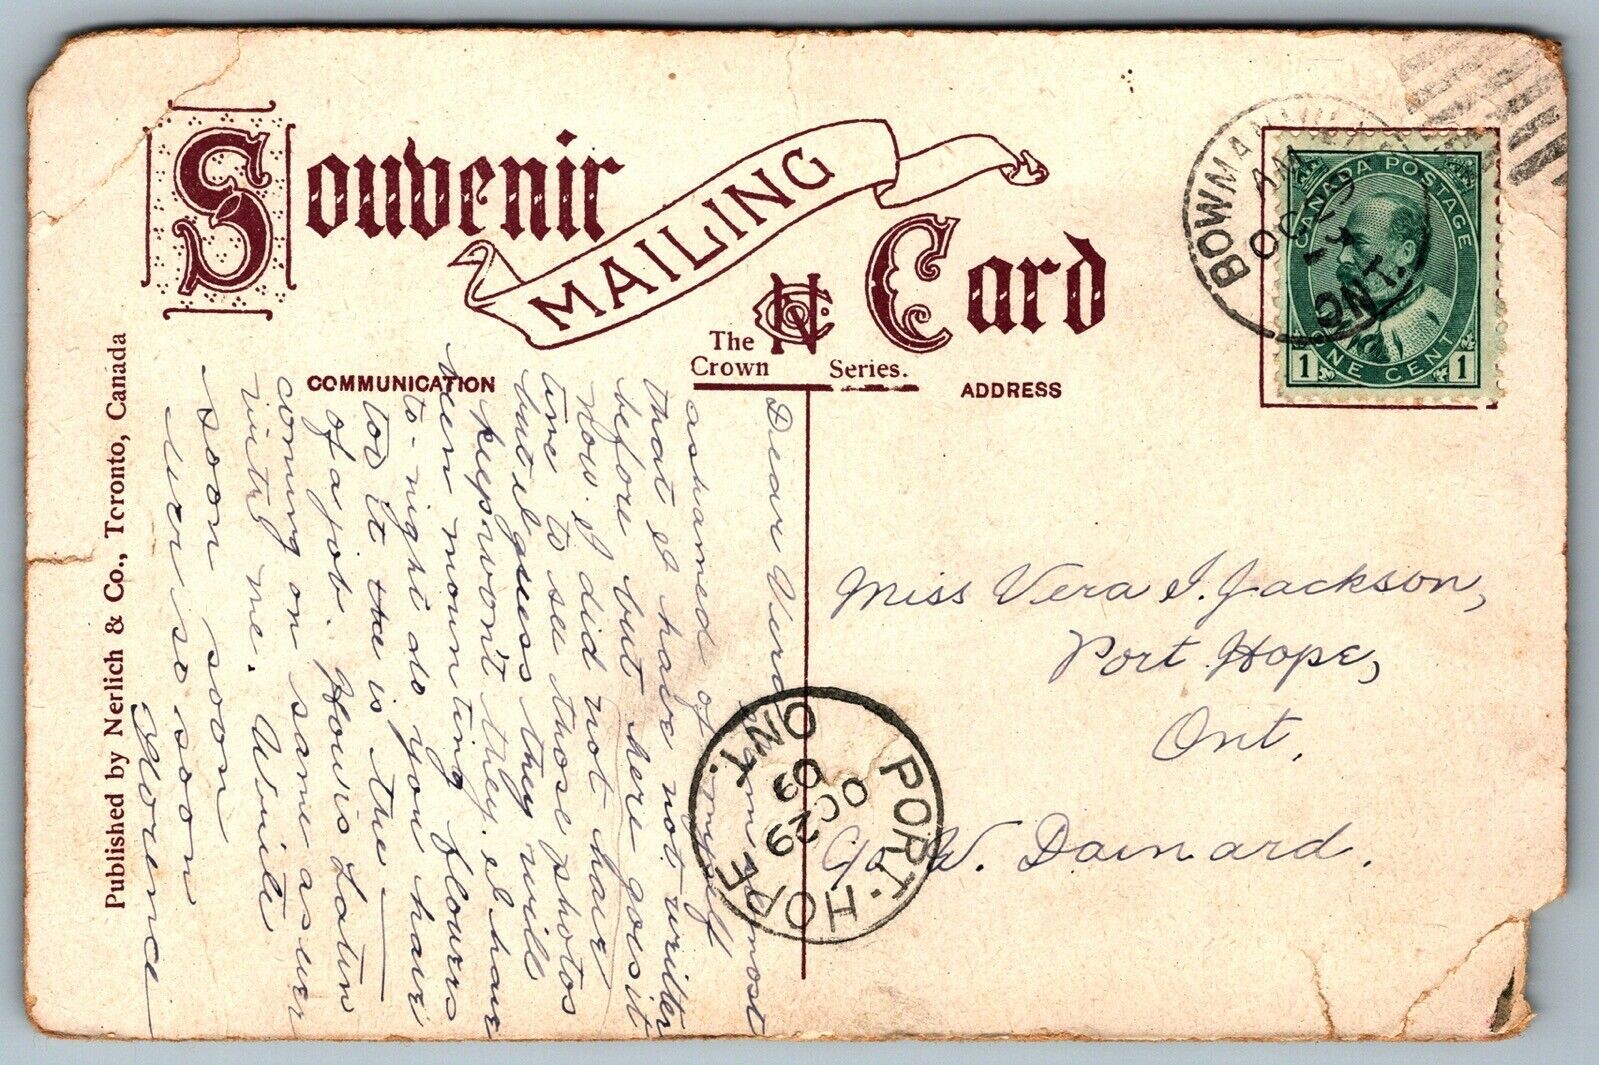 Souvenir
MAILING
Card
The
Crown
Series.
COMMUNICATION
ADDRESS
BOWMANVILLE
AM
OC 29
ONT.
CANADA POSTAGE
1 ONE CENT 1
Dear Vera I am almost
ashamed of myself
that I have not writter
before but here goes it
now. I did not have
time to see those photos
but I guess they will
keep won't they. I have
been mounting flours
to-night do you have
too it the is the
of a job. How is Latin
coming on same as ever
with me. Write
soon soon
ever so soon
Florence
Miss Vera I. Jackson,
Port Hope,
Ont.
c/o W. Dainard.
PORT-HOPE
OC 29
09
ONT.
Published by Nerlich & Co., Toronto, Canada